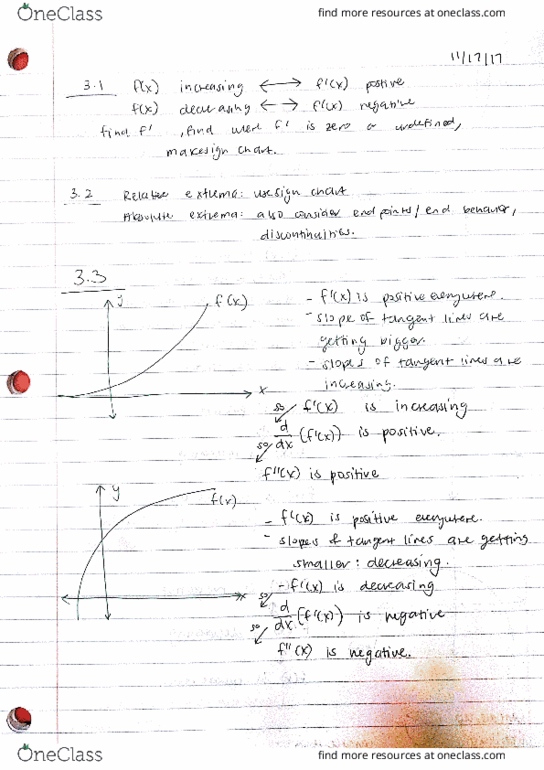 OneClass
find more resources at oneclass.com
11/17/17
3.1 f(x) increasing ⟷ f'(x) postive
f(x) decreasing ⟷ f'(x) negative
find f', find where f' is zero or undefined,
make sign chart.
3.2 Relative extrema: use sign chart
Absolute extrema: also consider end points/end behavior,
discontinuities.
3.3
y
f(x)
x
- f'(x) is positive everywhere.
- slope of tangent lines are
getting bigger.
- slopes of tangent lines are
increasing.
so f'(x) is increasing
so d/dx (f'(x)) is positive.
f''(x) is positive
y
f(x)
x
- f'(x) is positive everywhere.
- slopes of tangent lines are getting
smaller: decreasing.
so - f'(x) is decreasing
so d/dx (f'(x)) is negative
f''(x) is negative.
OneClass
find more resources at oneclass.com